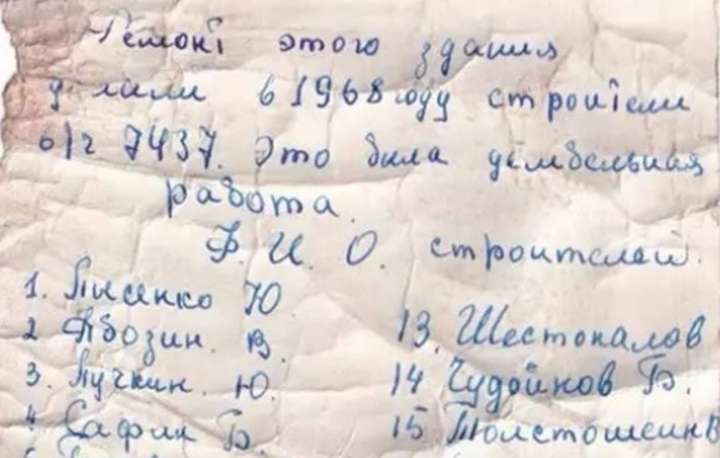 Ремонт этого здания
делали в 1968 году строители
в/ч 7437. Это была дембельная
работа.
Ф. И. О. строителей.
1. Лисенко Ю
2 Авозин. В.
3. Пучкин. Ю.
4. Сафин Б.
13. Шестопалов
14 Чудойнов Б.
15 Толстошеин В